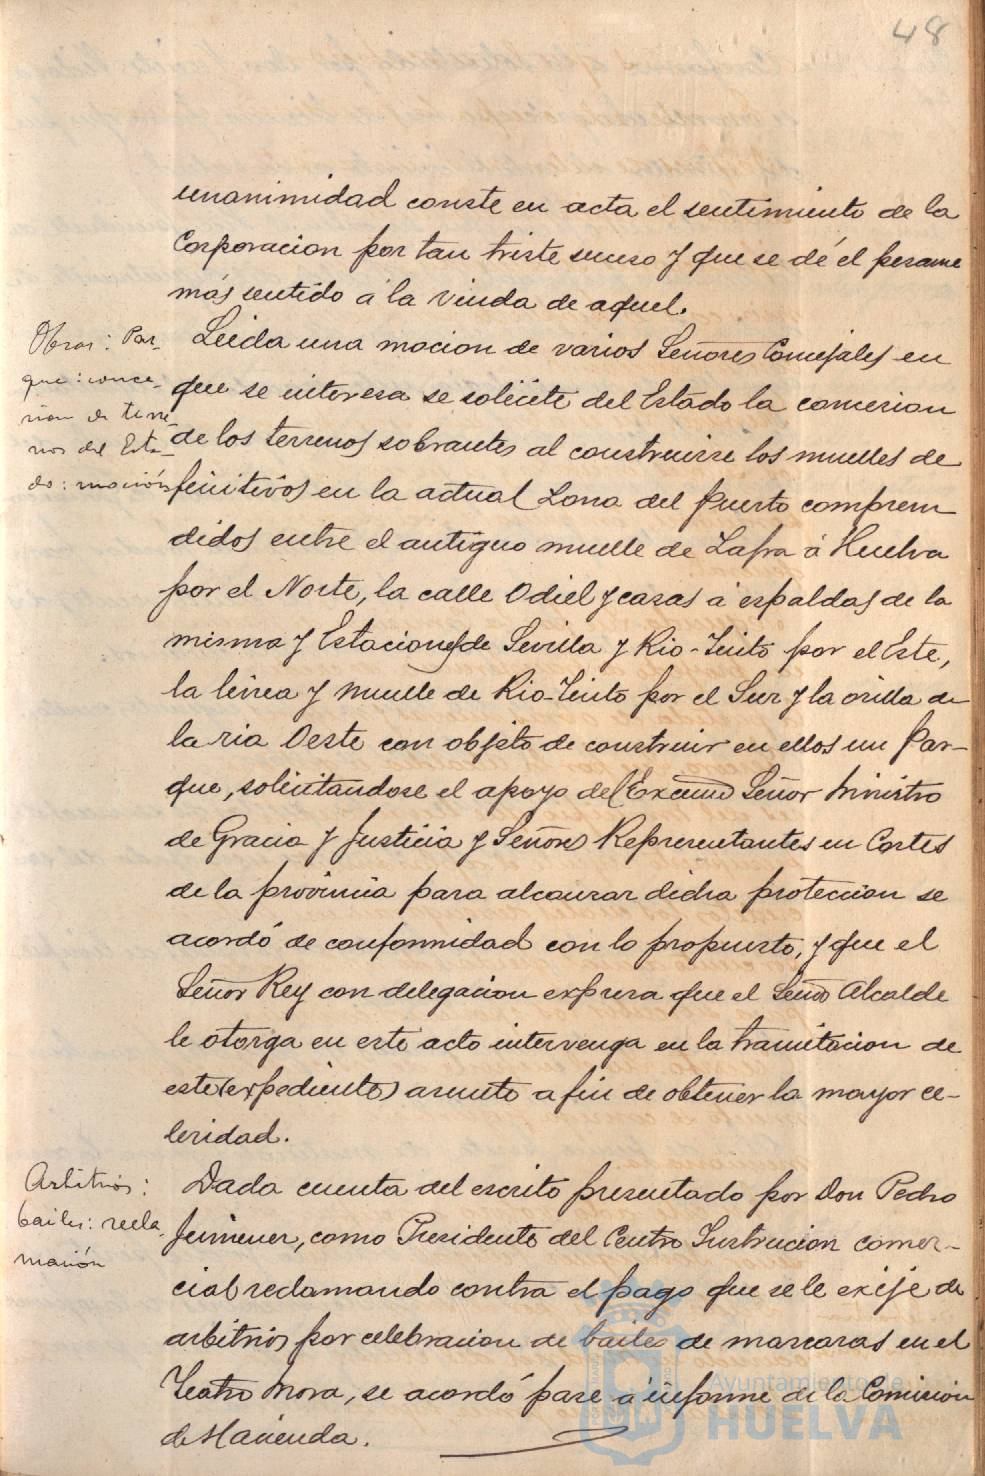 48
unanimidad conste en acta el sentimiento de la
Corporacion por tan triste suceso y que se dé el pesame
más sentido á la viuda de aquel.
Obras: Par-
que: conce-
sion de terre-
nos del Esta-
do: moción
Leida una mocion de varios Señores Concejales en
que se interesa se solicite del Estado la concesion
de los terrenos sobrantes al construirse los muelles de
finitivos en la actual Zona del puerto compren
didos entre el antiguo muelle de Zafra á Huelva
por el Norte, la calle Odiel y casas á espaldas de la
misma y Estaciones de Sevilla y Rio-Tinto por el Este,
la linea y muelle de Rio-Tinto por el Sur y la orilla de
la ria Oeste con objeto de construir en ellos un Par-
que, solicitandose el apoyo del Excmo Señor Ministro
de Gracia y Justicia y Señores Representantes en Cortes
de la provincia para alcanzar dicha proteccion se
acordó de conformidad con lo propuesto, y que el
Señor Rey con delegacion expresa que el Señor Alcalde
le otorga en este acto intervenga en la tramitacion de
este (expediente) asunto a fin de obtener la mayor ce-
leridad.
Arbitrios:
bailes: recla
mación
Dada cuenta del escrito presentado por Don Pedro
Jimenez, como Presidente del Centro Instrucion comer-
cial reclamando contra el pago que se le exije de
arbitrios por celebracion de bailes de mascaras en el
Teatro Mora, se acordó pase á informe de la Comisión
de Hacienda.
Ayuntamiento de
HUELVA